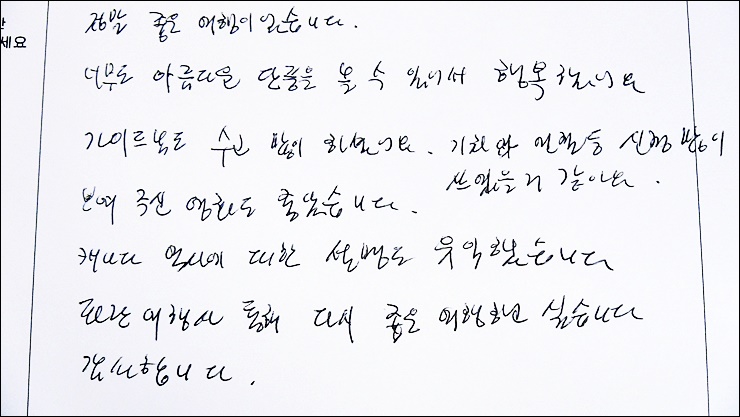 세요
정말 좋은 여행이었습니다.
너무도 아름다운 단풍을 볼 수 있어서 행복했어요
가이드분도 수고 많이 하셨어요. 기차와 연결등 신경 많이
쓰였을거 같아요.
보여주신 영화도 좋았습니다.
캐나다 역사에 대한 설명도 유익했습니다
여행사 통해 다시 좋은 여행하고 싶습니다
감사합니다.